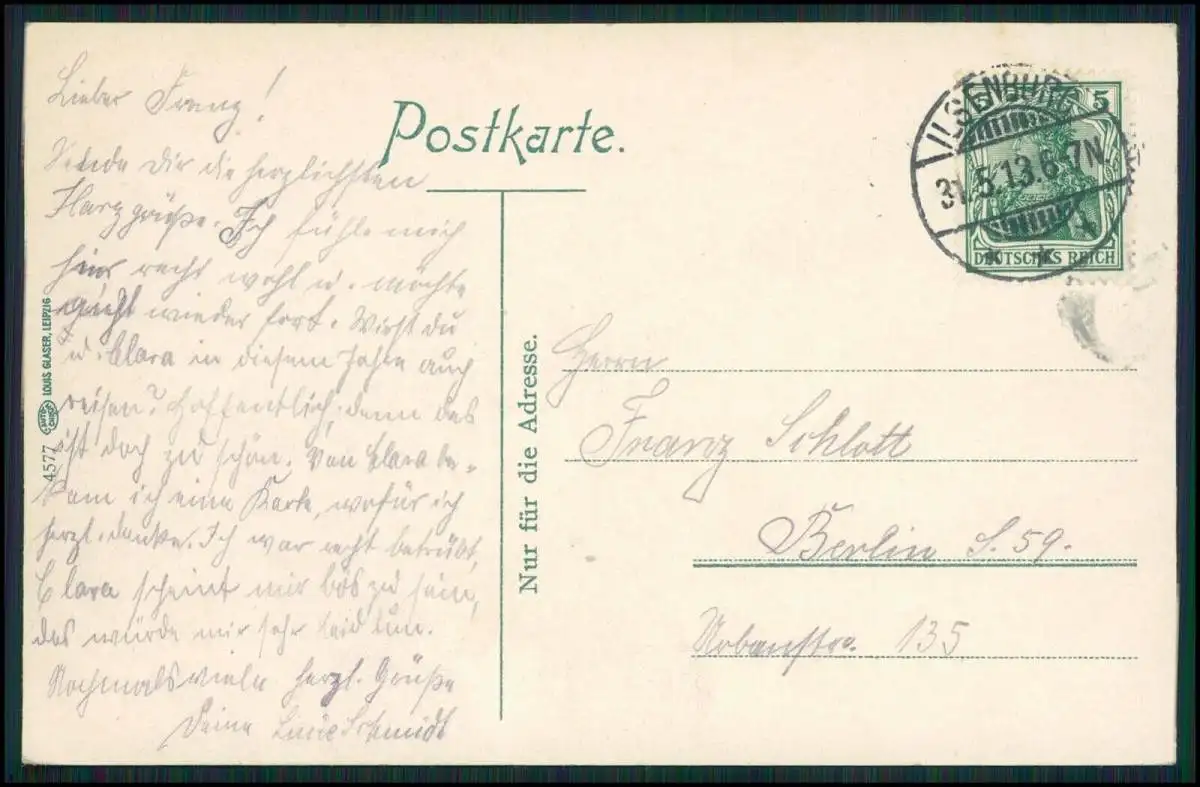 Lieber Franz!
Sende Dir die herzlichsten
Harzgrüße. Ich fühle mich
hier recht wohl u. möchte
nicht wieder fort. Wirst du
u. Clara in diesem Jahre auch
reisen? Hoffentlich, denn das
ist doch zu schön. Von Clara be-
kam ich eine Karte, wofür ich
herzl. danke. Ich war recht betrübt,
Clara scheint mir bös zu sein,
das würde mir sehr leid tun.
Nochmals viele herzl. Grüße
Deine Schmidt
4577 LOUIS GLASER, LEIPZIG
Postkarte.
Nur für die Adresse.
ILSENBURG
31.5.13.6-7N
5
DEUTSCHES REICH
Herrn
Franz Schlott
Berlin S. 59.
Urbanstr. 135